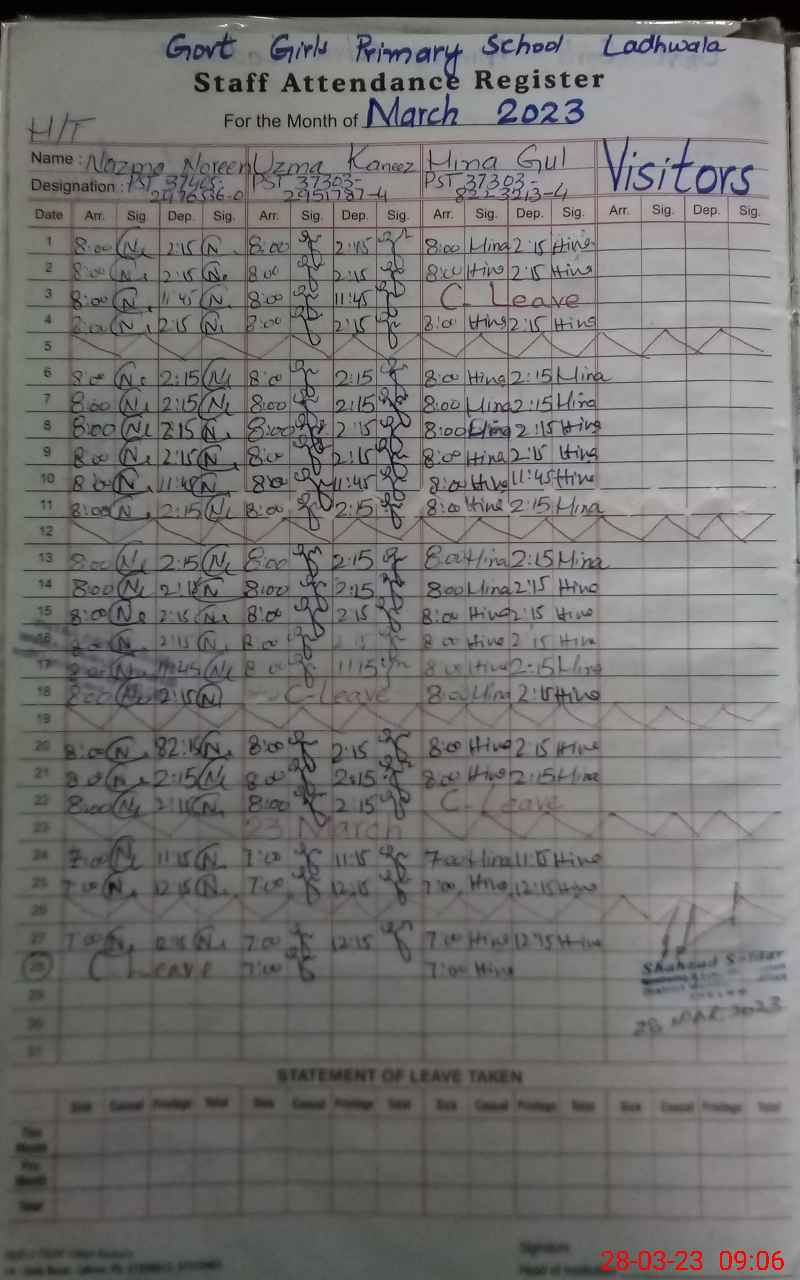 Govt Girls Primary School Ladhwala
Staff Attendance Register
For the Month of March 2023
H/T
Name : Nazma Noreen Uzma Kaneez Hina Gul Visitors
Designation : PST PST 37303- PST 37303-
2951787-4
Date Arr. Sig. Dep. Sig. Arr. Sig. Dep. Sig. Arr. Sig. Dep. Sig. Arr. Sig. Dep. Sig.
1 8:00 N 2:15 N 8:00 2:45 8:00 Hina 2:15 Hina
2 8:00 N 2:15 N 8:00 2:15 8:00 Hina 2:15 Hina
3 8:00 N 11:45 N 8:00 11:45 C. Leave
4 8:00 N 2:15 N 8:00 2:15 8:00 Hina 2:15 Hina
5
6 8:00 N 2:15 N 8:00 2:15 8:00 Hina 2:15 Hina
7 8:00 N 2:15 N 8:00 2:15 8:00 Hina 2:15 Hina
8 8:00 N 2:15 N 8:00 2:15 8:00 Hina 2:15 Hina
9 8:00 N 2:15 N 8:00 2:15 8:00 Hina 2:15 Hina
10 8:00 N 11:45 N 8:00 11:45 8:00 Hina 11:45 Hina
11 8:00 N 2:15 N 8:00 2:15 8:00 Hina 2:15 Hina
12
13 8:00 N 2:15 N 8:00 2:15 8:00 Hina 2:15 Hina
14 8:00 N 2:15 N 8:00 2:15 8:00 Hina 2:15 Hina
15 8:00 N 2:15 N 8:00 2:15 8:00 Hina 2:15 Hina
16 8:00 N 2:15 N 8:00 8:00 Hina 2 15 Hina
17 8:00 N 11:45 N 8:00 11:15 8:00 Hina 2:15 Hina
18 8:00 N 2:15 N C-Leave 8:00 Hina 2:15 Hina
19
20 8:00 N 82:15 N 8:00 2:15 8:00 Hina 2:15 Hina
21 8:00 N 2:15 N 8:00 2:15 8:00 Hina 2:15 Hina
22 8:00 N 2:15 N 8:00 2:15 C-Leave
23 23 March
24 7:00 N 11:15 N 7:00 11:15 7:00 Hina 11:15 Hina
25 7:00 N 12:15 N 7:00 12:15 7:00 Hina 12:15 Hina
26
27 7:00 N 12:15 N 7:00 12:15 7:00 Hina 12:15 Hina
28 C Leave 7:00 7:00 Hina
29
30
31
28 MAR 2023
STATEMENT OF LEAVE TAKEN
Sick Casual Privilege Total Sick Casual Privilege Total Sick Casual Privilege Total Sick Casual Privilege Total
This Month
Pre. Month
Total
Signature
28-03-23 09:06